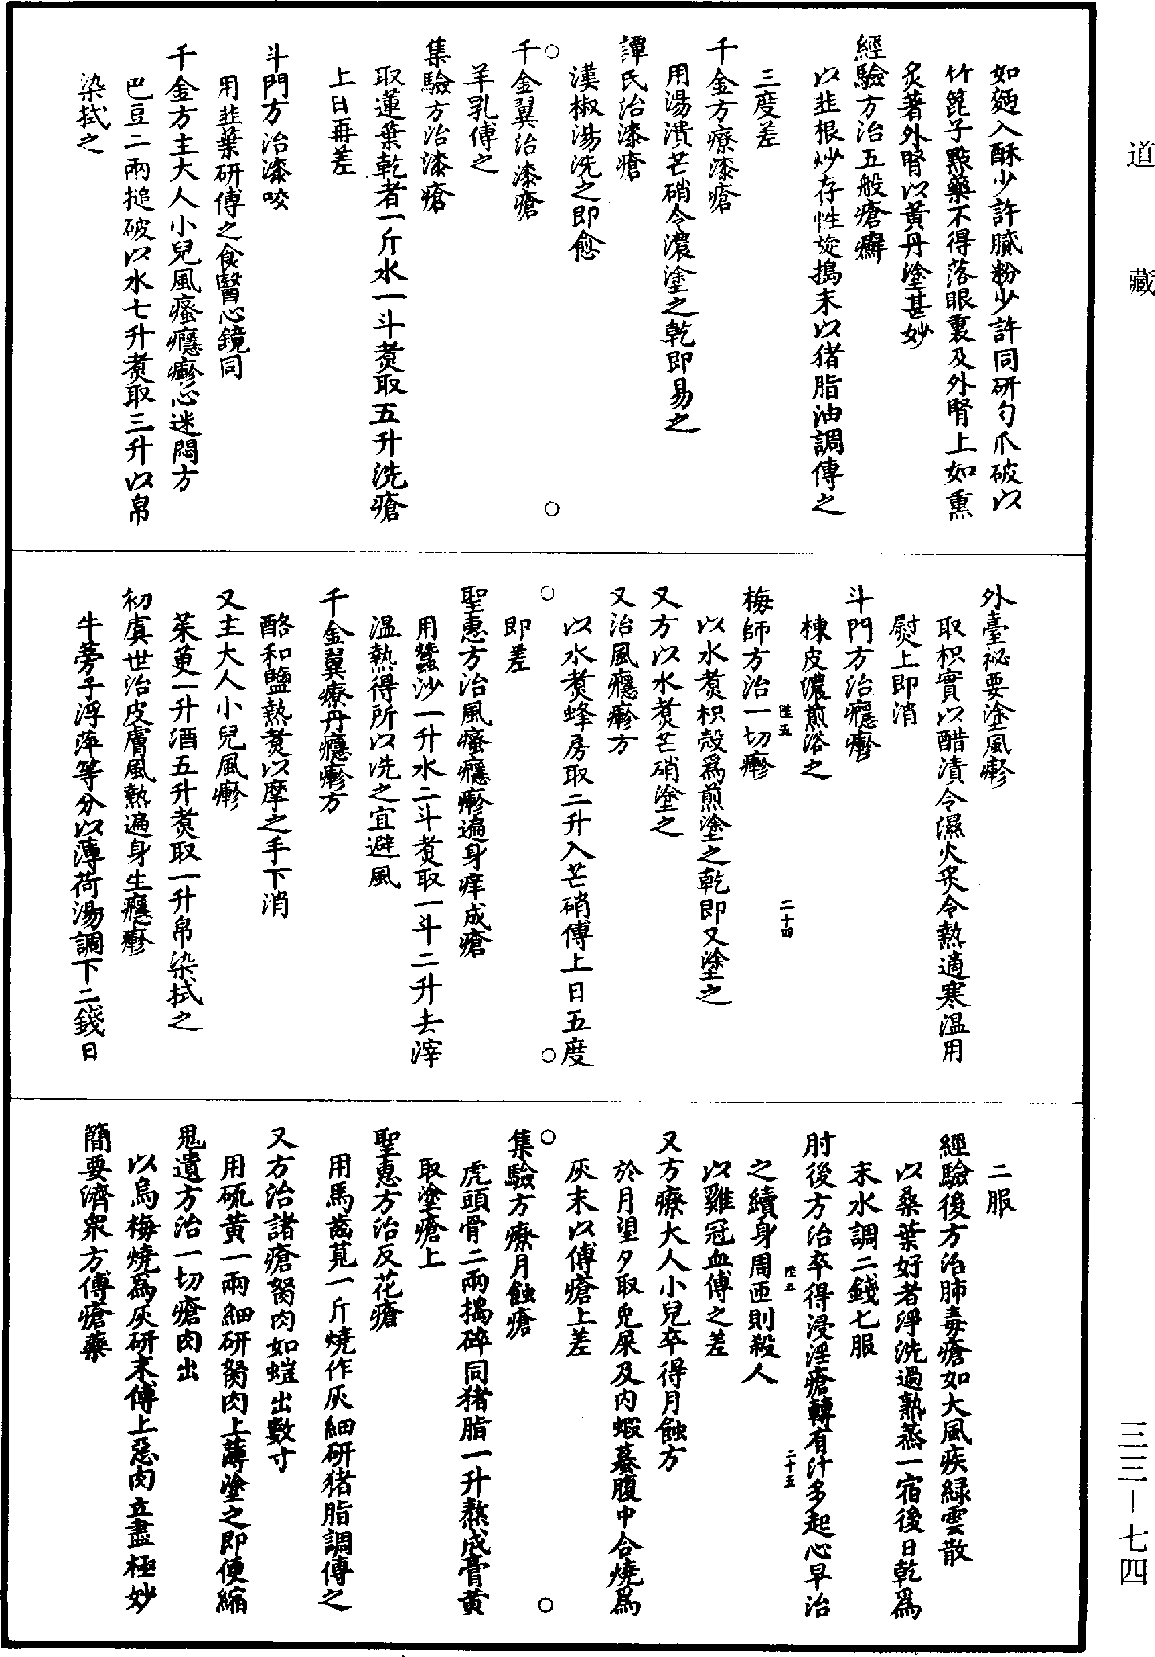 道藏
如麵入酥少許膩粉少許同研勺爪破以
竹篦子點藥不得落眼裏及外腎上如熏
炙著外腎以黃丹塗甚妙
經驗方治五般瘡癬
以韭根炒存性旋搗末以猪脂油調傅之
三度差
千金方療漆瘡
用湯潰芒硝令濃塗之乾即易之
譚氏治漆瘡
漢椒湯洗之即愈
千金翼治漆瘡
羊乳傅之
集驗方治漆瘡
取蓮葉乾者一斤水一斗煑取五升洗瘡
上日再差
斗門方治漆咬
用韭葉研傅之食醫心鏡同
千金方主大人小兒風瘙癮瘮心迷悶方
巴豆二兩搥破以水七升煑取三升以帛
染拭之
外臺祕要塗風瘮
取枳實以醋漬令濕火炙令熱適寒溫用
熨上即消
斗門方治癮瘮
楝皮濃煎浴之
陸五
梅師方治一切瘮
二十四
以水煑枳殼爲煎塗之乾即又塗之
又方以水煑芒硝塗之
又治風癮瘮方
以水煑蜂房取二升入芒硝傅上日五度
即差
聖惠方治風瘙癮瘮遍身痒成瘡
用蠶沙一升水二斗煑取一斗二升去滓
溫熱得所以洗之宜避風
千金翼療丹癮瘮方
酪和鹽熱煑以摩之手下消
又主大人小兒風瘮
茱萸一升酒五升煑取一升帛染拭之
初虞世治皮膚風熱遍身生癮瘮
牛蒡子浮萍等分以薄荷湯調下二錢日
二服
經驗後方治肺毒瘡如大風疾綠雲散
以桑葉好者淨洗過熟蒸一宿後日乾爲
末水調二錢七服
肘後方治卒得浸淫瘡轉有汁多起心早治
陸五
二十五
之續身周匝則殺人
以雞冠血傅之差
又方療大人小兒卒得月蝕方
於月望夕取兔屎及內蝦蟇腹中合燒爲
灰末以傅瘡上差
集驗方療月蝕瘡
虎頭骨二兩搗碎同猪脂一升熬成膏黃
取塗瘡上
聖惠方治反花瘡
用馬齒莧一斤燒作灰細研猪脂調傅之
又方治諸瘡胬肉如螘出數寸
用硫黃一兩細研胬肉上薄塗之即便縮
鬼遺方治一切瘡肉出
以烏梅燒爲灰研末傅上惡肉立盡極妙
簡要濟衆方傅瘡藥
三三—七四